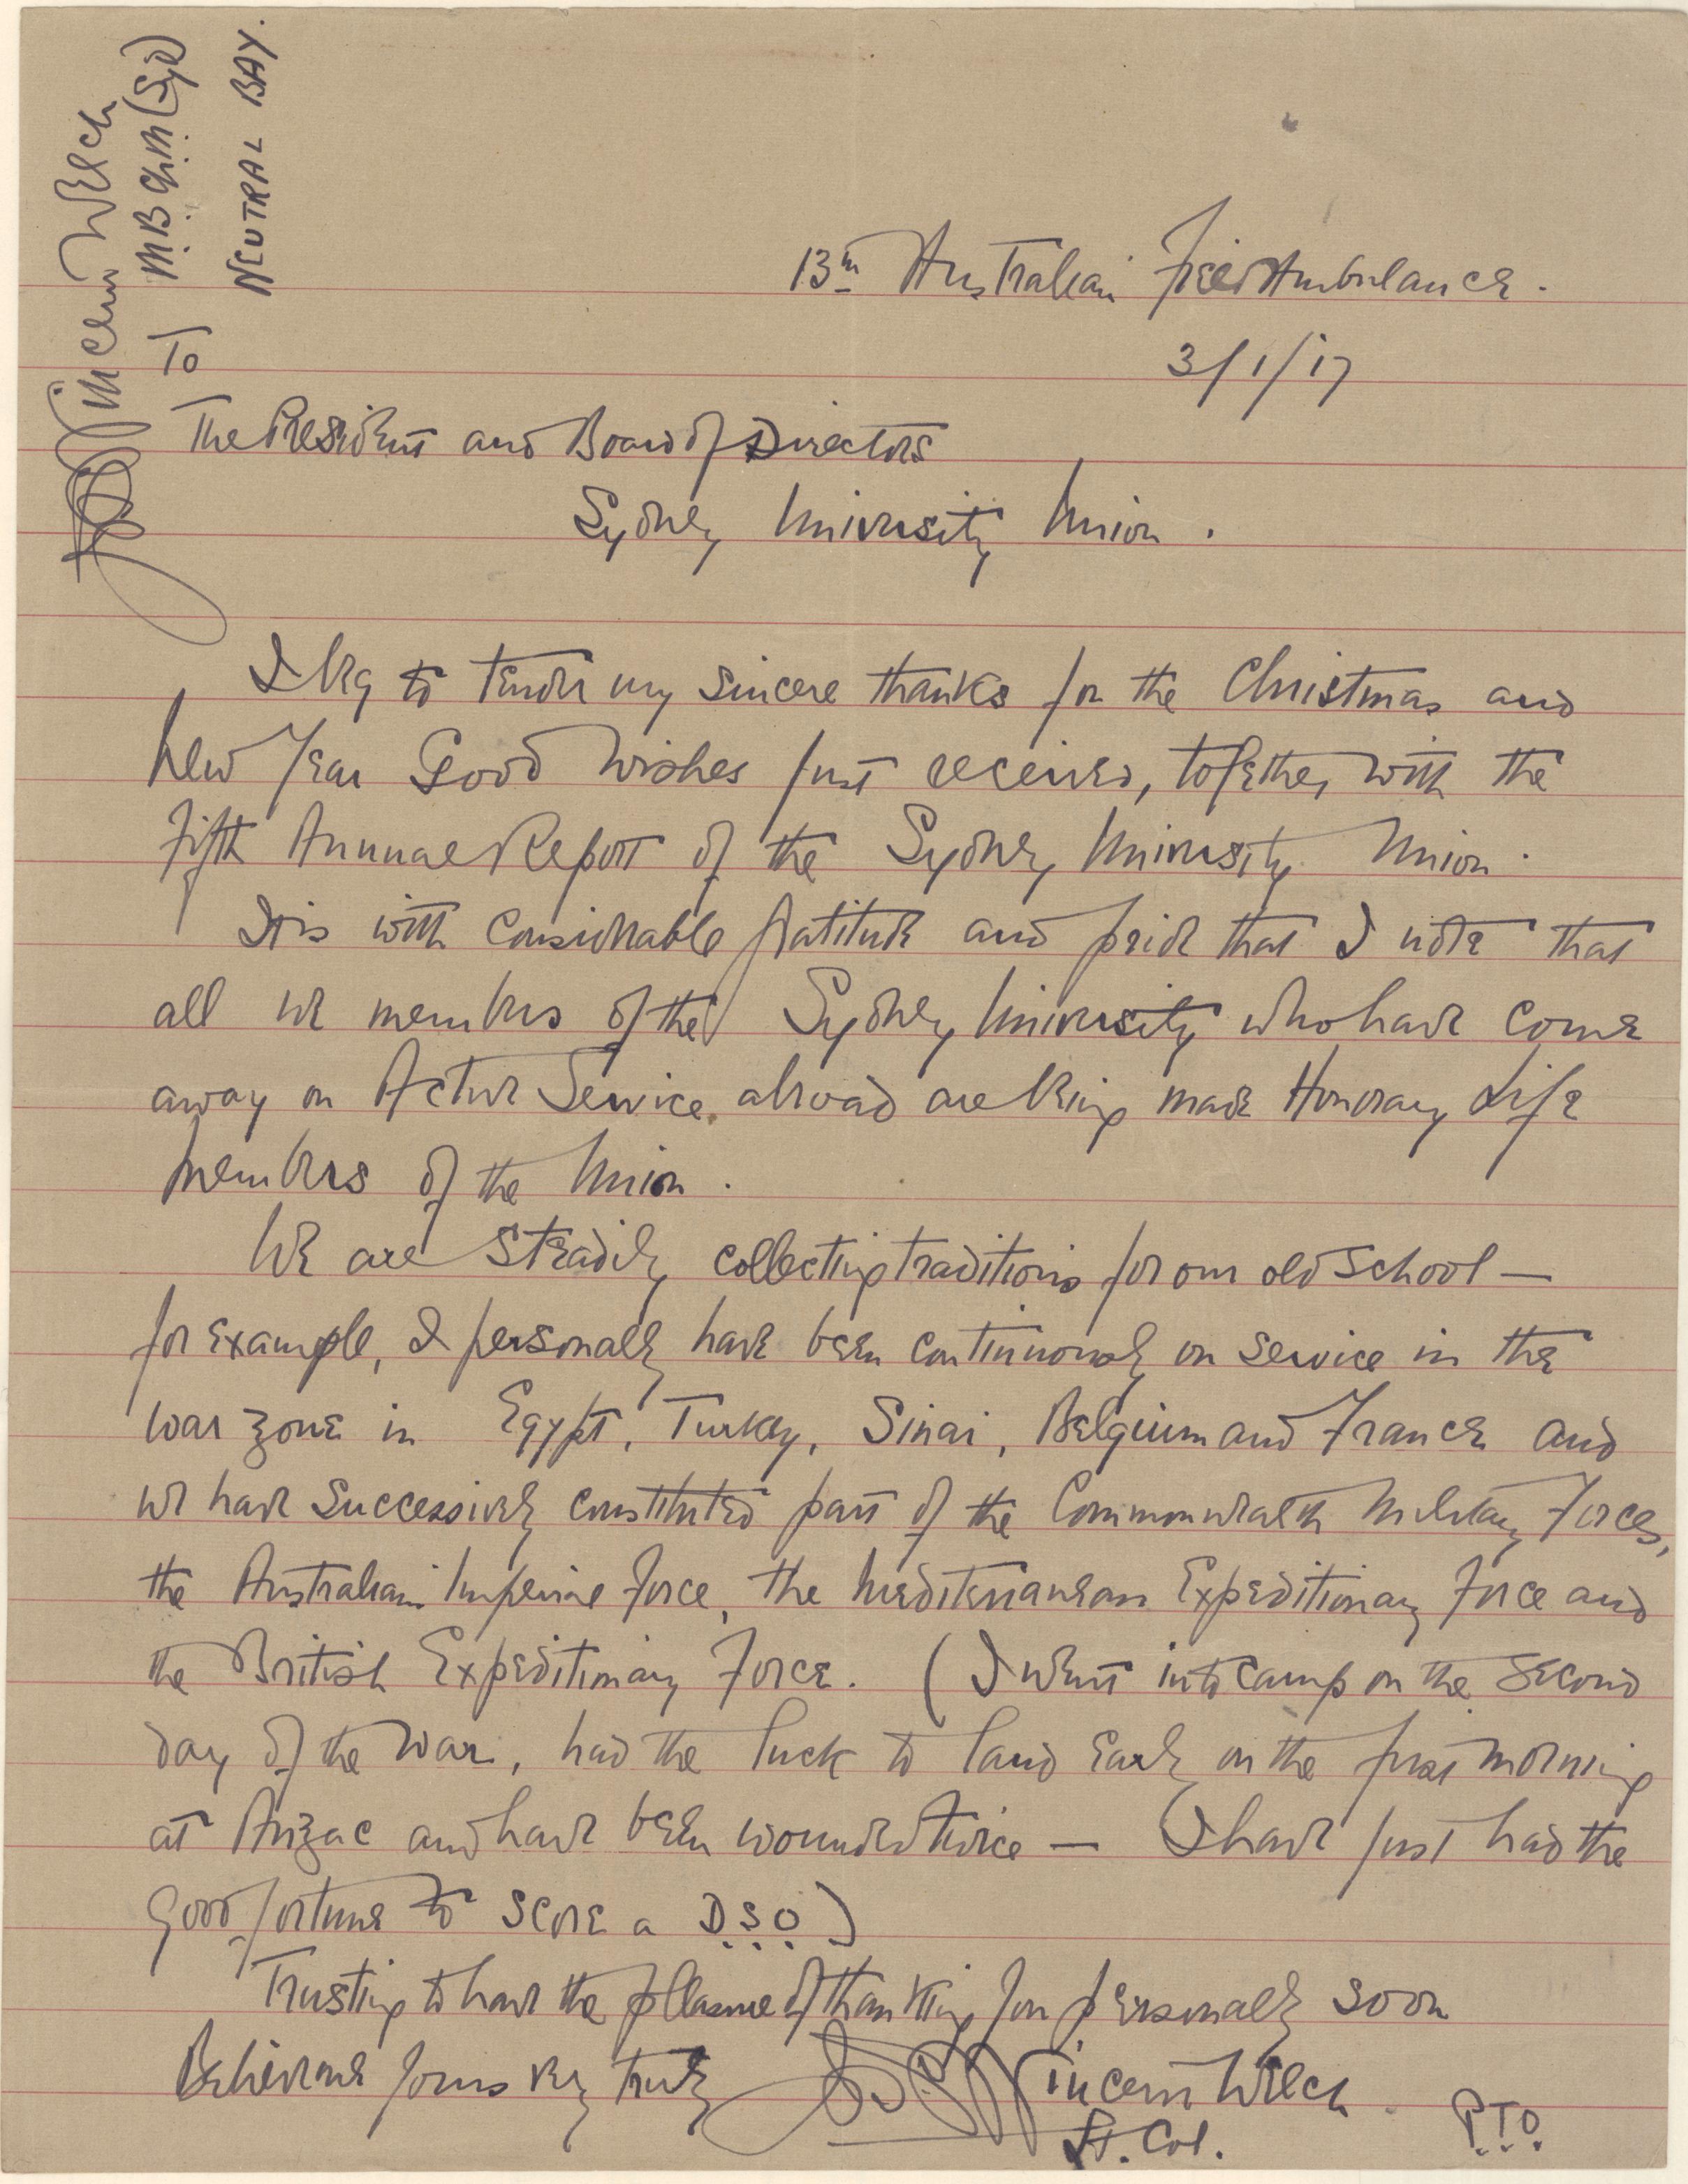 Vincent Welch
M.B. Ch.M. (Syd)
NEUTRAL BAY.
13th Australian Field Ambulance.
3/1/17
To
The President and Board of Directors
Sydney University Union.
I beg to tender my sincere thanks for the Christmas and
New Year Good Wishes just received, together with the
Fifth Annual Report of the Sydney University Union.
It is with considerable gratitude and pride that I note that
all we members of the Sydney University who have come
away on Active Service abroad are being made Honorary Life
members of the Union.
We are steadily collecting traditions for our old school —
for example, I personally have been continuously on service in the
war zone in Egypt, Turkey, Sinai, Belgium and France and
we have successively constituted part of the Commonwealth Military Forces,
the Australian Imperial Force, the Mediterranean Expeditionary Force and
the British Expeditionary Force. (I went into camp on the second
day of the War, had the luck to land early on the first morning
at Anzac and have been wounded twice — I have just had the
good fortune to score a D.S.O.)
Trusting to have the pleasure of thanking you personally soon
Believe me yours very truly Vincent Welch.
Lt. Col.
P.T.O.